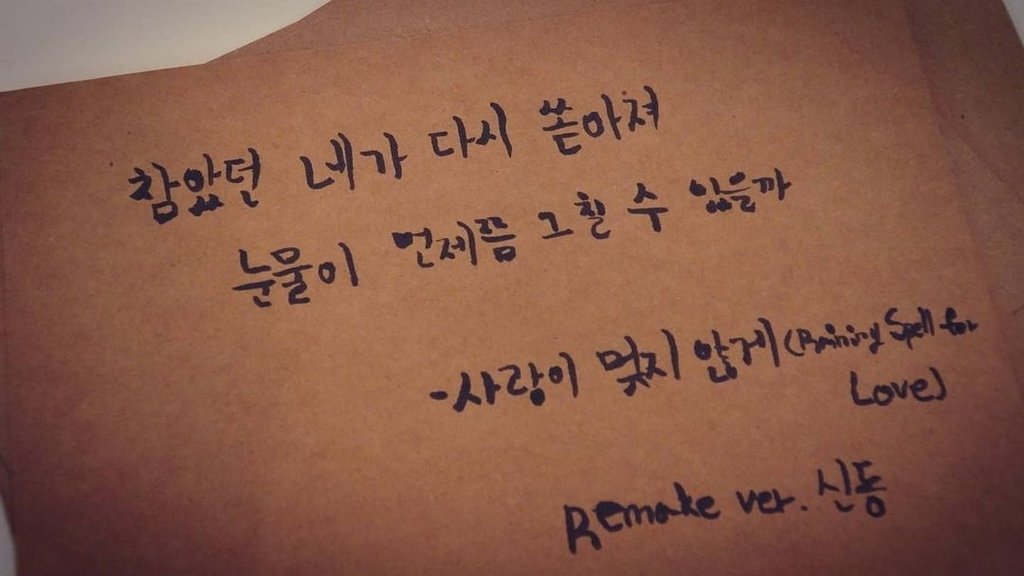 참았던 네가 다시 쏟아져
눈물이 언제쯤 그칠 수 있을까
-사랑이 멎지 않게 (Raining Spell for
Love)
Remake ver. 신동